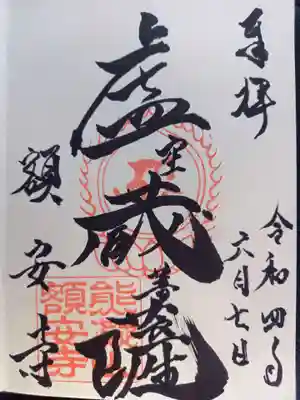 奉拝
令和四年
六月七日
虚空蔵菩薩
額安寺
額安寺